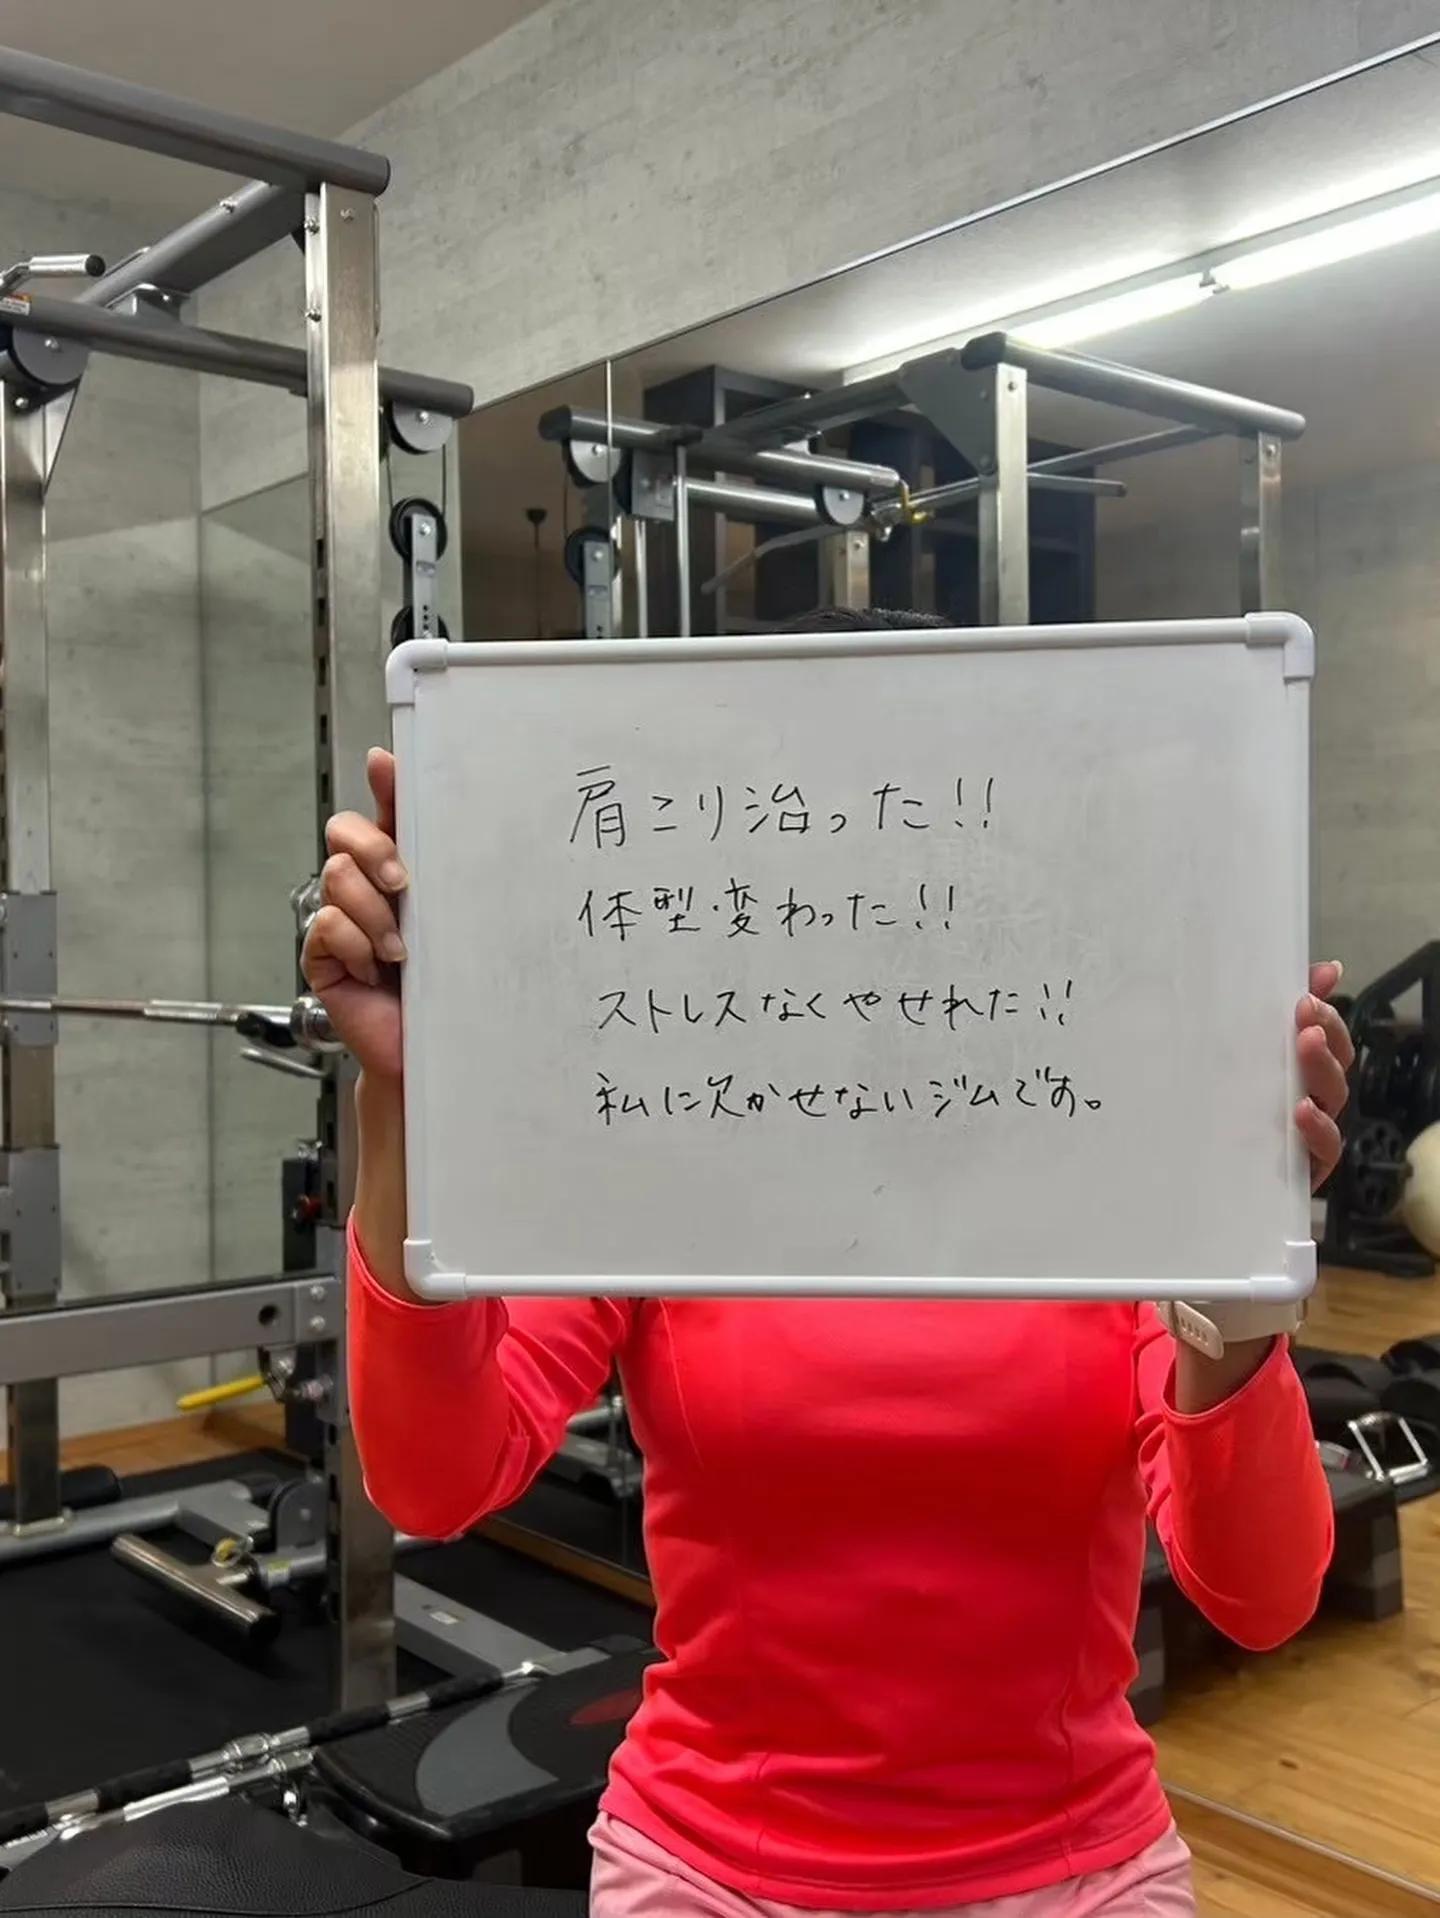 肩こり治った!!
体型変わった!!
ストレスなくやせれた!!
私に欠かせないジムです。